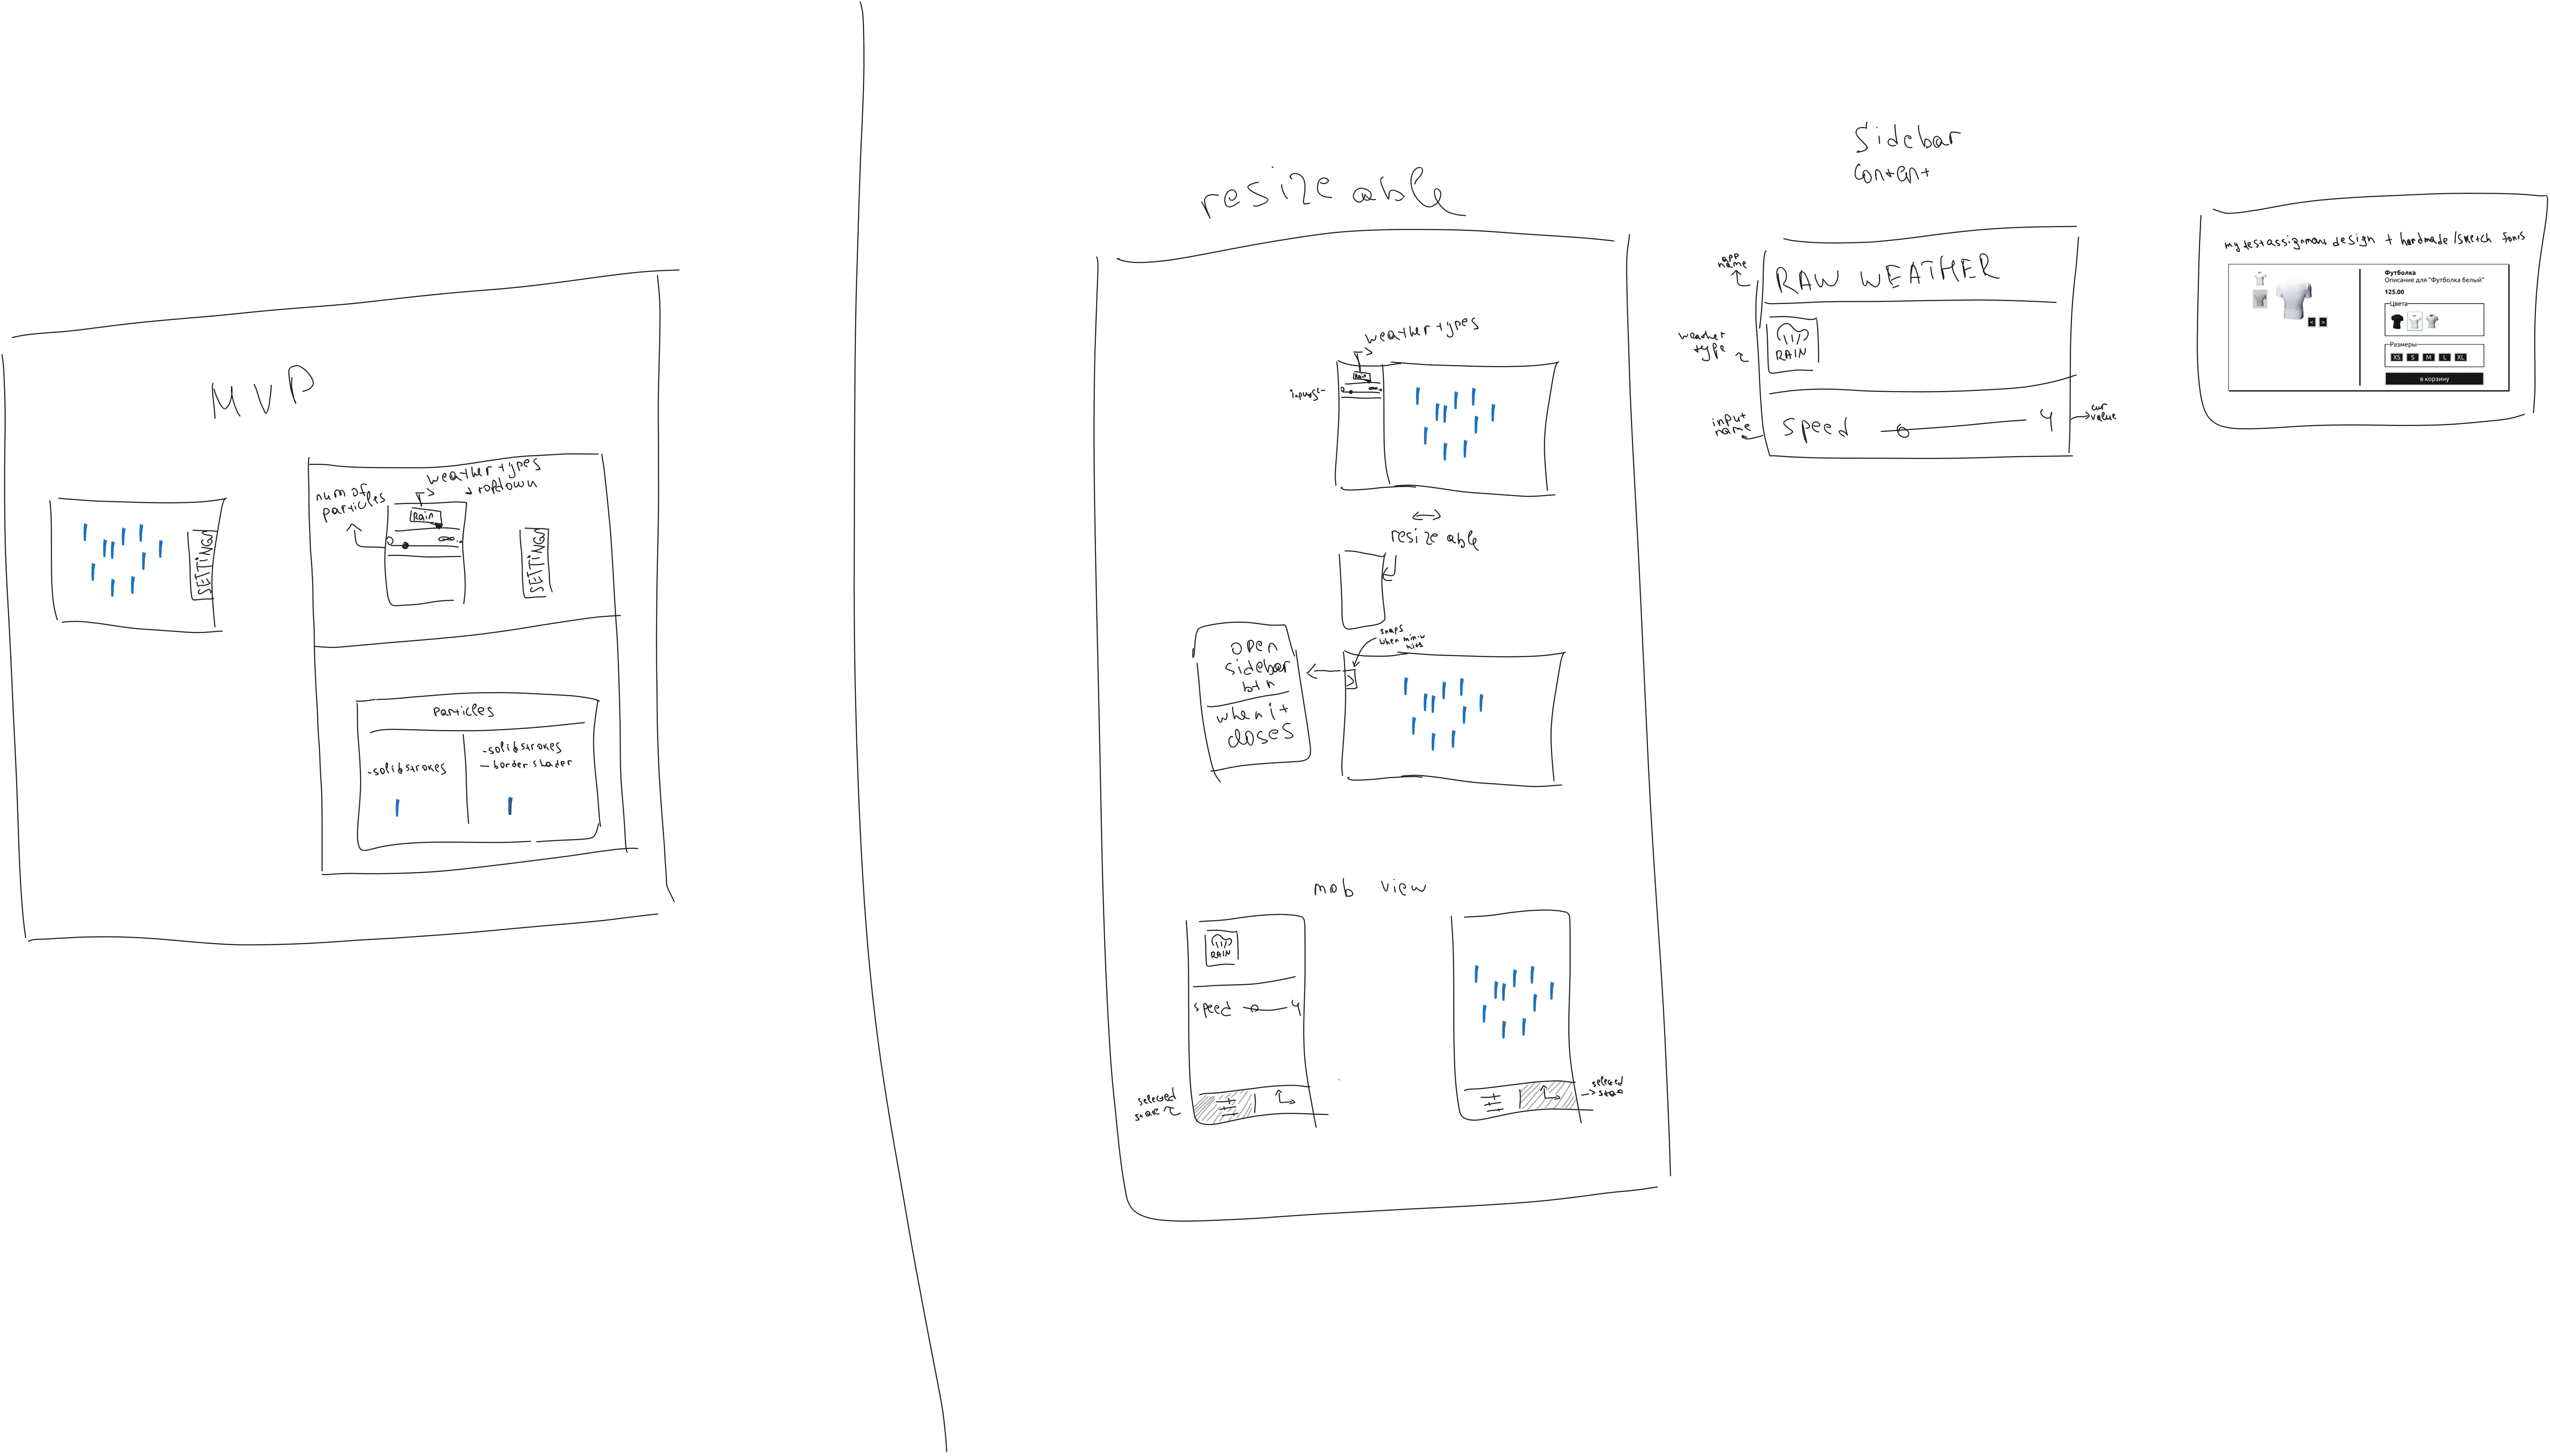 MVP
SETTINGS
num of
particles
weather types
dropdown
Rain
SETTINGS
particles
-solid strokes
-solid strokes
- border shader
resizeable
weather types
Rain
inputs
resizeable
snaps
when min-w
hits
open
sidebar
btn
when it
closes
mob view
RAIN
speed 4
selected
state
selected
state
Sidebar
content
app
name
RAW WEATHER
weather
type
RAIN
input
name
speed 4
cur
value
my test assignment design + handmade/sketch fonts
Футболка
Описание для "Футболка белый"
125.00
Цвета
< >
Размеры
XS S M L XL
в корзину